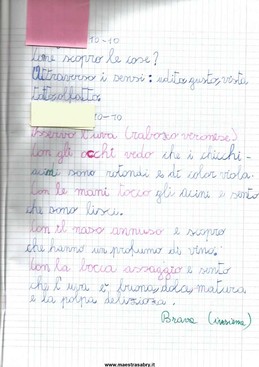 10-10
Come scopro le cose?
Attraverso i sensi: udito, gusto, vista
tatto, olfatto.
10-10
Osservo l'uva (raboso veronese)
Con gli occhi vedo che i chicchi-
acini sono rotondi e di color viola.
Con le mani tocco gli acini e sento
che sono lisci.
Con il naso annuso e scopro
che hanno un profumo di vino.
Con la bocca assaggio e sento
che l'uva è buona, dolce, matura
e la polpa deliziosa.
Brava (insieme)
www.maestrasabry.it